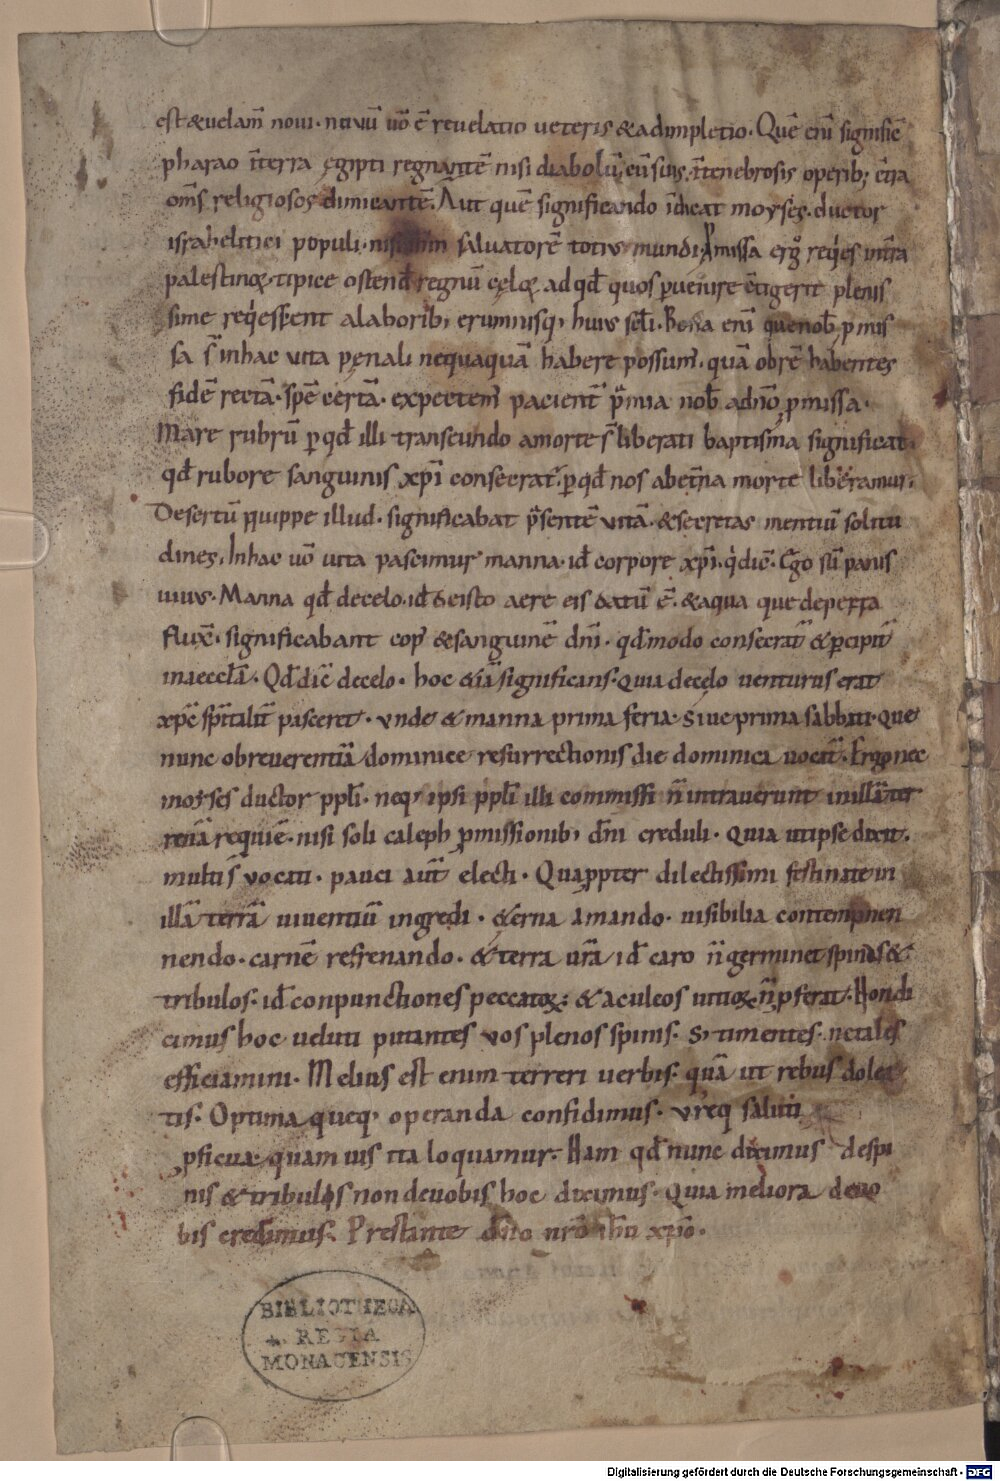 est & uelam̄ noui. nouū uō ē reuelatio ueteris & adimpletio. Quē eni significē
pharao īterra ęgipti regnantē nisi diabolū cū suis ītenebrosis operib; cōtra
om̄s religiosos dimicantē. Aut quē significando īdicat moyses. ductor
israhelitici populi. nisi salvatorē totius mundi. Pmissa ergo
palestinoꝝ. tipice ostend̄ regnū cęloꝝ. ad qđ quos puenire plenis
sime a laborib; erumnisq; huius scl̄i. Bona enī que nob̄ pmis
sa st̄ in hac uita penali nequaquā habere possum̄. quā obrē habentes
fidē rectā. spē certā. expectem̄ pacient̄ p̄mia nob̄ adn̄o pmissa.
Mare rubrū p qđ illi transeundo amorte st̄ liberati baptism̄a significat.
qđ rubore sanguinis xp̄i consecrat̄. p qđ nos ab et̄na morte liberamur.
Desertū quippe illud. significabat p̄sentē vitā. & secretas mentiū solitu
dines. In hac uō uita pascimur manna. id̄ corpore xp̄i. q̇ dic̄. Ego sū panis
uiuus. Manna qđ de celo. id̄ de isto aere eis datū ē. & aqua que de petra
fluxit̄. significabant corp̄ & sanguinē dn̄i. qđ modo consecrat̄ & pcipit̄
in aeccl̄a. Qđ dic̄ de celo. hoc & iā significans. quia de cęlo uenturus erat
xp̄c sp̄italit̄ pasceret. vnde & manna prima feria. siue prima sabbati. que
nunc ob reuerentiā dominice resurrectionis die dominica uocat̄. Ergo nec
moyses ductor ppl̄i. neq; ipsi ppl̄i illi commissi n̄ intrauerunt in illā ter
renā requiē. nisi soli caleph pmissionib; dn̄i creduli. quia ut ipse dicit.
multi st̄ vocati. pauci aut̄ electi. Quappter dilectissimi festinate in
illā terrā uiuentiū ingredi. & ęterna amando. uisibilia contempnen
nendo. carnē refrenando. & terra ur̄a id̄ caro n̄ germinet spinas &
tribulos. id̄ conpunctiones peccatoꝝ: & aculeos uitioꝝ n̄ pferat. Non di
cimus hoc ueluti putantes vos plenos spinis. S; timentes. ne tales
efficiamini. Melius est enim terreri uerbis. quā ut rebus dolea
tis. Optima queq; operanda confidimus. vr̄eq; saluti
pficua. quam uis ita loquamur. Nam qđ nunc dicimus de spi
nis & tribulis non de uobis hoc dicimus. quia meliora de uo
bis credimus. Prestante dn̄o nr̄o ih̄u xp̄o.
BIBLIOTHECA
REGIA
MONACENSIS
Digitalisierung gefördert durch die Deutsche Forschungsgemeinschaft - DFG